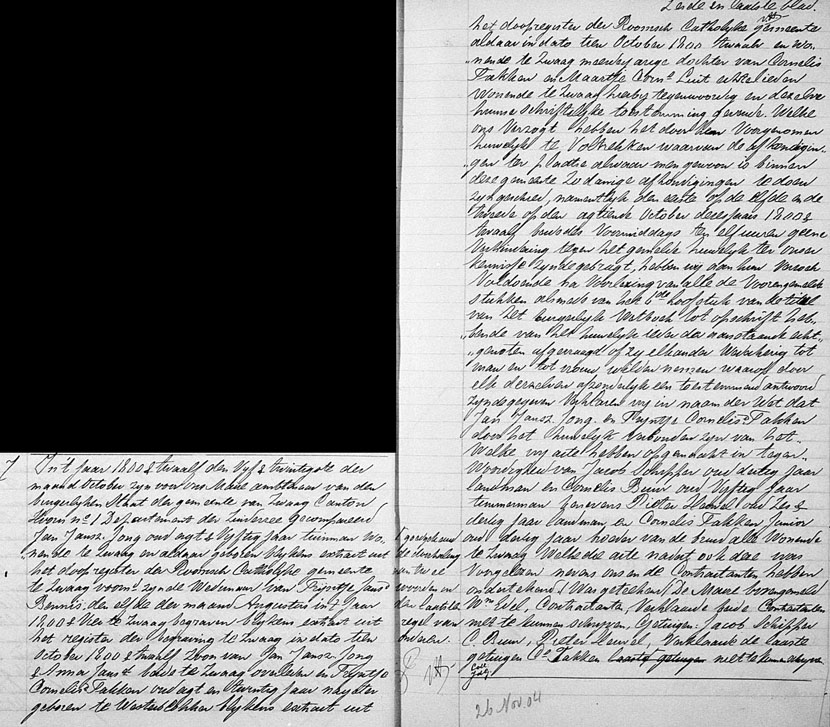 7 In't jaar 1800 & twaalf den Vyf & twintigste der
maand October zyn voor ons Maire ambtenaar van den
burgerlyken Staat der gemeente van Zwaag Canton
Hoorn no 1 Departement der Zuiderzee gecompareerd
Jan Jansz. Jong oud agt & Vyftig jaar tuinman Wo-
nende te Zwaag en aldaar geboren blykens extract uit
het doopregister der Roomsch Catholyke gemeente
te Zwaag voorn. zynde Weduwnaar van Tryntje Jans
Bennis, den elfde der maand Augustus in't jaar
1800 & Vier te Zwaag begraven blykens extract uit
het register der begraving te Zwaag in dato tien
October 1800 & twaalf Zoon van Jan Jansz. Jong
& Anna Jans beide te Zwaag overleden en Tryntje
Cornelis Fakken oud agt en twintig jaar
geboren te Westerblokker blykens extract uit
2de en laatste blad.
het doopregister der Roomsch Catholyke gemeente
aldaar in dato tien October 1800 twaalf en Wo-
nende te Zwaag meerderjarige dochter van Cornelis
Fakken en Maartje Corns Luit echtelieden
Wonende te Zwaag hierby tegenwoordig en dezelve
hunne Schriftelyke toestemming gevende. Welke
ons Verzogt hebben het door hun Voorgenomen
huwelyk te Voltrekken waarvan de afkondigin-
gen ter plaatse alwaar men gewoon is binnen
deze gemeente Zodanige afkondigingen te doen
zyn geschied, namentlyk den eerste op de elfde en de
tweede op den agtiende October dezes jaars 1800 &
twaalf beides Voormiddags ten elf uuren geene
Verhindering tegen het gemelde huwelyk ter onzer
kennisse zynde gebragt, hebben wy aan hun Verzoek
Voldoende na Voorlezing van alle de Vorengemelde
stukken alsmede van het 6de hoofdstuk van de titel
van het burgerlyk Wetboek tot opschrift heb-
bende van het huwelyk ieder der aanstaande echt-
genoten afgevraagd of zy elkander Wederkerig tot
man en tot vrouw wilden nemen waarop door
elk derzelver afzonderlyk een toestemmend antwoord
zynde gegeven Verklaren wy in naam der Wet dat
Jan Jansz. Jong. en Tryntje Cornelis Fakken
door het huwelyk verbonden zyn van het
Welke wy acte hebben opgemaakt in tegen-
Woordigheid van Jacob Schipper oud dertig jaar
landman en Cornelis Buur oud Vyftig jaar
timmerman benevens Pieter oud Zes &
dertig jaar landman en Cornelis Fakken Junior
oud dertig jaar broeder van de bruid alle Wonende
te Zwaag. Welke de acte nadat ook deze was
Voorgelezen nevens ons en de Contractanten hebben
ondertekend (Was getekend) De Maire bovengemeld
Wm Eel, Contractanten, Verklaarde beide Contractanten
niet te kunnen schryven, Getuigen: Jacob Schipper
C. Buur, Pieter, Verklaarde de laatste
getuigen Cs Fakken laatste getuigen niet te kunnen schryven
26 Nov. 04